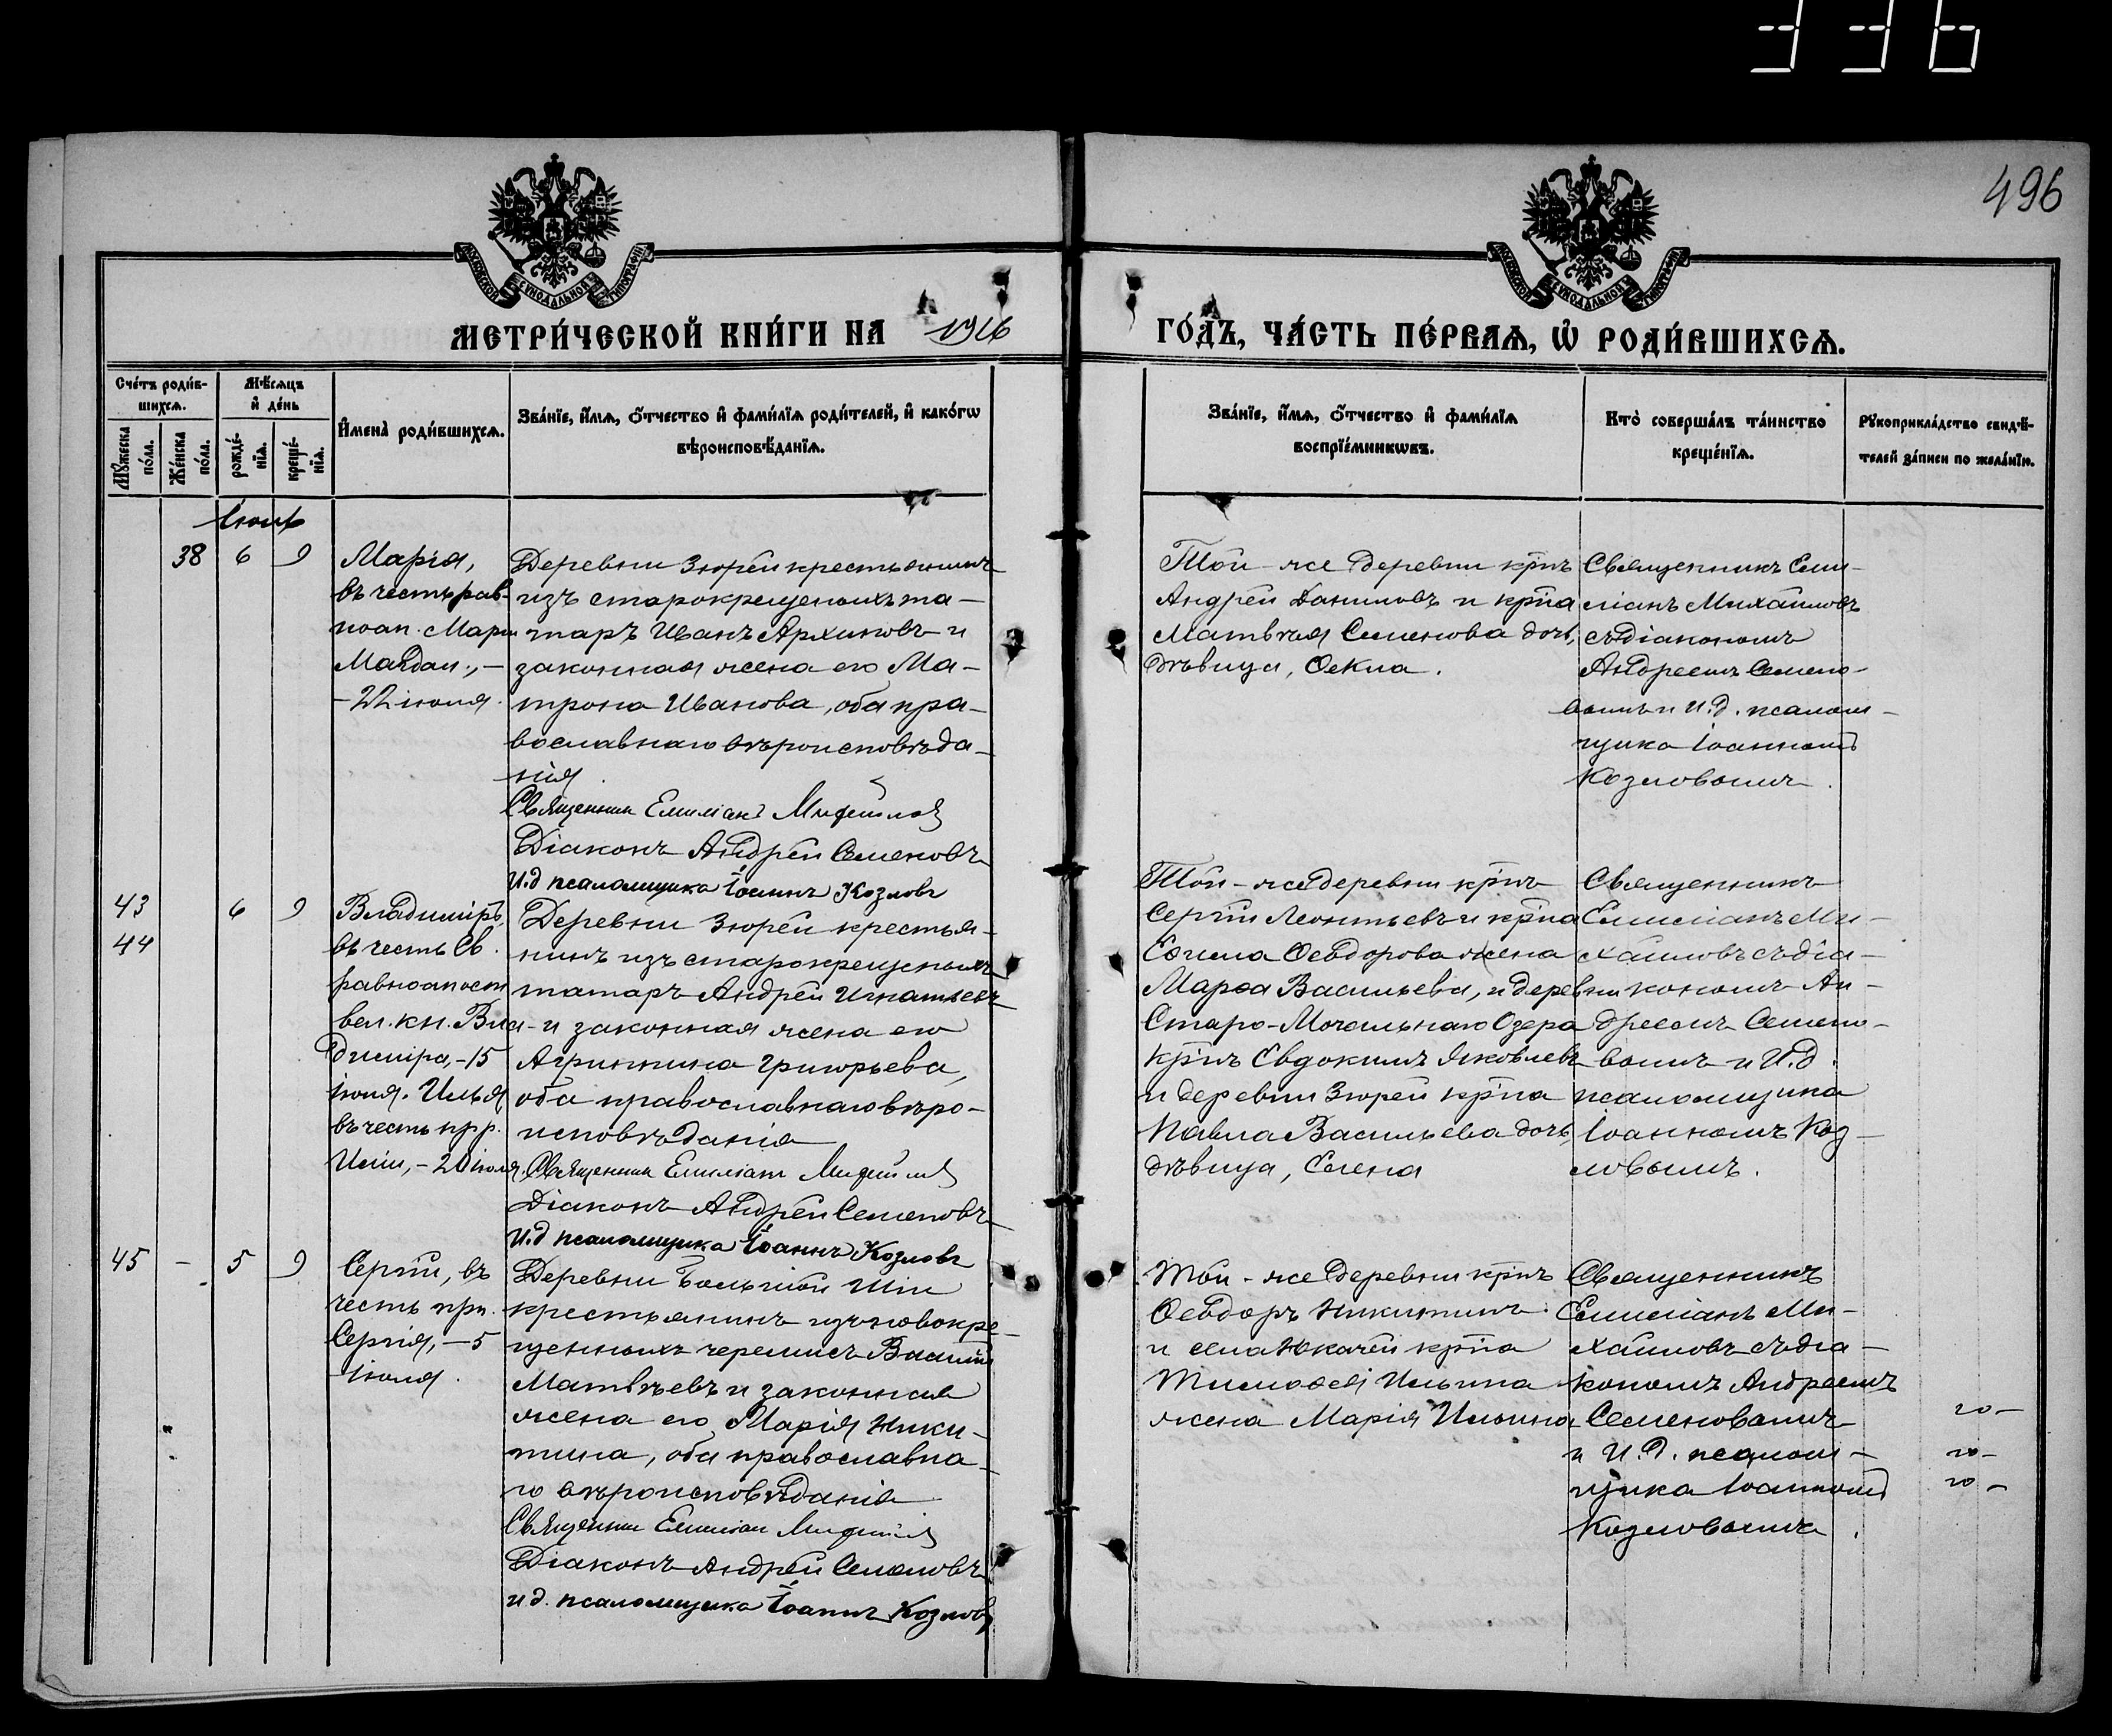 336
496
МОСКОВСКОЙ СѴНОДАЛЬНОЙ ТИПОГРАФІИ
МОСКОВСКОЙ СѴНОДАЛЬНОЙ ТИПОГРАФІИ
МЕТРИ́ЧЕСКОЙ КНИ́ГИ НА 1916
ГО́ДЪ, ЧА́СТЬ ПЕ́РВАѦ, Ѡ҆ РОДИ́ВШИХСѦ.
Сче́тъ роди́в-
шихсѧ.
Мꙋ́жеска по́ла.
Же́нска по́ла.
Мѣ́сѧцъ
и҆ де́нь
рожде́-нїѧ.
креще́-нїѧ.
И҆мена̀ роди́вшихсѧ.
Зва́нїе, и҆́мѧ, ѻ҆́тчество и҆ фами́лїѧ роди́телей, и҆ како́гѡ
вѣроисповѣ́данїѧ.
Зва́нїе, и҆́мѧ, ѻ҆́тчество и҆ фами́лїѧ
воспрїе́мникѡвъ.
Кто̀ соверша́лъ та́инство
креще́нїѧ.
Рꙋкоприкла́дство свидѣ́-
телей за́писи по жела́нїю.
Іюль
38 6 9
Марія,
въ честь рав-
ноап. Маріи
Магдал., –
– 22 іюля.
Деревни Зюрей крестьянинъ
изъ старокрещеныхъ та-
таръ Иванъ Архиповъ и
законная жена его Ма-
трона Иванова, оба пра-
вославнаго вѣроисповѣда-
нія.
Священникъ Емиліанъ Михайловъ
Діаконъ Андрей Семеновъ
И.д псаломщика Іоаннъ Козловъ
Той-же деревни кр̃нъ
Андрей Даниловъ и кр̃на
Матвѣя Семенова дочь,
дѣвица, Ѳекла.
Священникъ Еми-
ліанъ Михайловъ
съ діакономъ
Андреемъ Семено-
вымъ и И.д. псалом-
щика Іоанномъ
Козловымъ.
43 6 9
44
Владиміръ,
въ честь Св.
равноапост
вел. кн. Вла-
диміра, – 15
іюля. Илья
въ честь прр.
Иліи, – 20 іюля.
Деревни Зюрей крестья-
нинъ изъ старокрещеныхъ
татаръ Андрей Игнатьевъ
и законная жена его
Агрипина Григорьева,
оба православнаго вѣро-
исповѣданія
Священникъ Емиліанъ Михайловъ
Діаконъ Андрей Семеновъ
И.д псаломщика Іоаннъ Козловъ
Той-же деревни кр̃нъ
Сергій Леонтьевъ и кр̃на
Ѳеодорова жена
Марѳа Васильева, и деревни
Старо-Мочальнаго Озера
кр̃нъ Евдокимъ Яковлевъ
и деревни Зюрей кр̃на
Павла Васильева дочь,
дѣвица, Елена
Священникъ
Емиліанъ Ми-
хайловъ съ діа-
кономъ Ан-
дреемъ Семено-
вымъ и И.д.
псаломщика
Іоанномъ Коз-
ловымъ.
45 – 5 9
Сергій, въ
честь прп.
Сергія, – 5
іюля.
Деревни Большой Шіи
крестьянинъ изъ новокре-
щенныхъ черемисъ Василій
Матвѣевъ и законная
жена его Марія Ники-
тина, оба православна-
го вѣроисповѣданія
Священникъ Емиліанъ Михайловъ
Діаконъ Андрей Семеновъ
и д. псаломщика Іоаннъ Козловъ
Той-же деревни кр̃нъ
Ѳеодоръ Никитинъ
и села Юкачей кр̃на
Тимоѳея Ильина
жена Марія Ильина
Священникъ
Емиліанъ Ми-
хайловъ съ діа-
кономъ Андреемъ
Семеновымъ
и И.д. псалом-
щика Іоанномъ
Козловымъ.
20 –
20 –
20 –